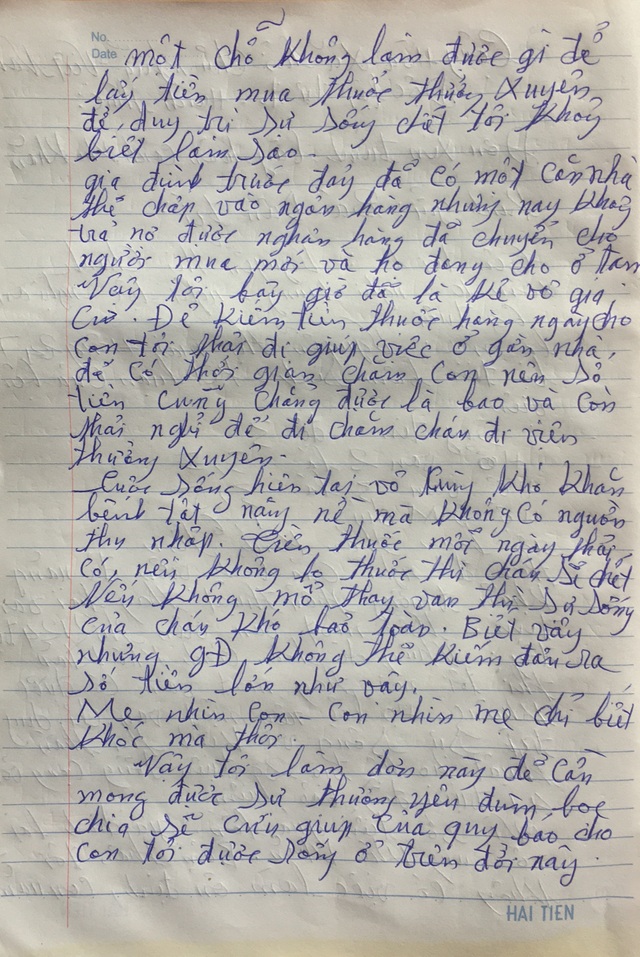 No.
Date
một chỗ không làm được gì để
lấy tiền mua thuốc thường xuyên
để duy trì sự sống chết tôi không
biết làm sao.
gia đình trước đây đã có một căn nhà
thế chấp vào ngân hàng nhưng nay không
trả nợ được nghân hàng đã chuyển cho
người mua mới và họ đang cho ở tạm
Vậy tôi bây giờ đã là kẻ vô gia
cư. Để kiếm tiền thuốc hàng ngày cho
con tôi phải đi giúp việc ở gần nhà,
để có thời gian chăm con nên số
tiền cũng chẳng được là bao và còn
phải nghỉ để đi chăm cháu đi viện
thường xuyên.
Cuộc sống hiện tại vô cùng khó khăn
bệnh tật nặng nề mà không có nguồn
thu nhập. Tiền thuốc mỗi ngày phải
có, nếu không có thuốc thì cháu sẽ chết
Nếu không mổ thay van thì sự sống
của cháu khó bảo toàn. Biết vậy
nhưng gĐ không thể kiếm đâu ra
số tiền lớn như vậy.
Mẹ nhìn con - con nhìn mẹ chỉ biết
khóc mà thôi.
Vậy tôi làm đơn này để cần
mong được sự thương yêu đùm bọc
chia sẽ cứu giúp của quý báo cho
con tôi được sống ở trên đời này.
HAI TIEN